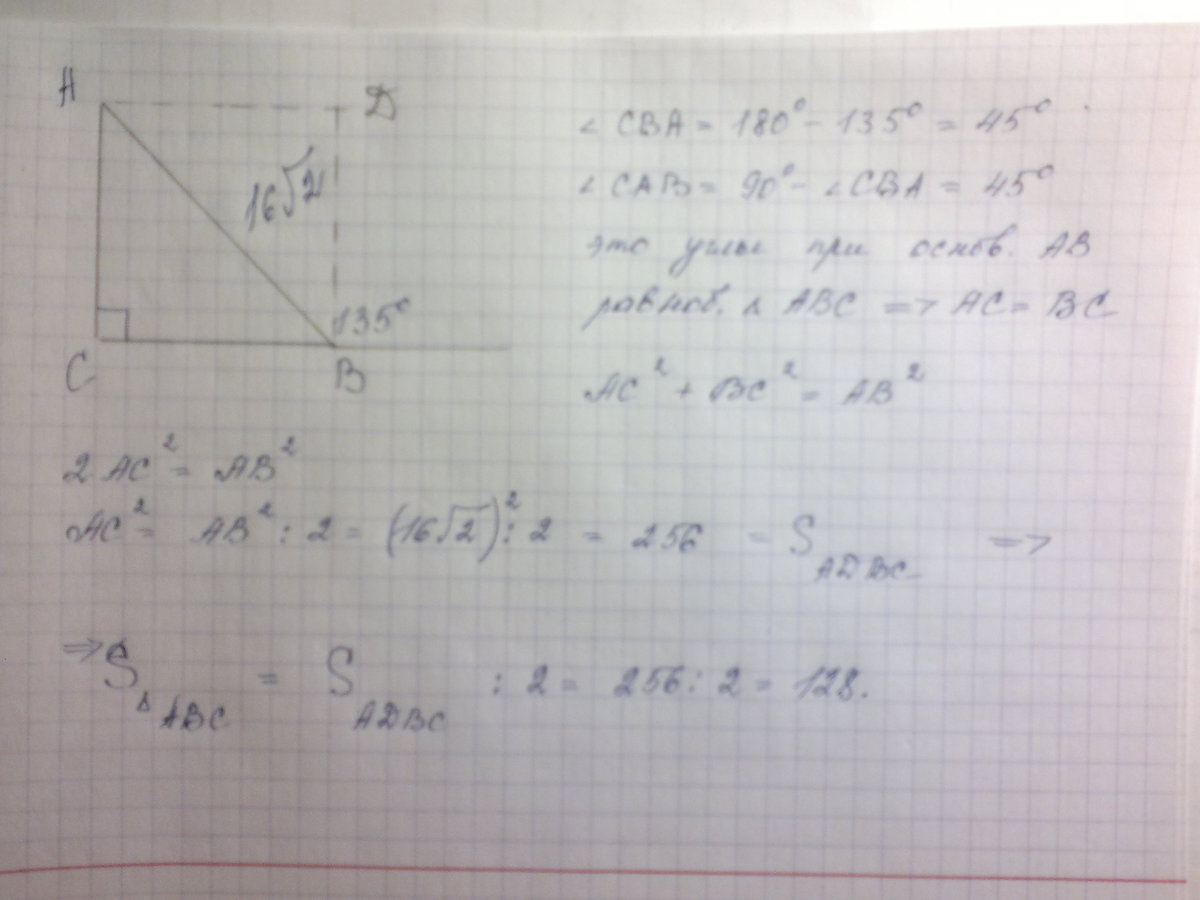 A
D
16√2
135°
C
B
∠ CBA = 180° - 135° = 45°
∠ CAB = 90° - ∠ CBA = 45°
это углы при основ. AB
равноб. Δ ABC => AC = BC
AC² + BC² = AB²
2 AC² = AB²
AC² = AB² : 2 = (16√2)² : 2 = 256 = S ADBC =>
=> S Δ ABC = S ADBC : 2 = 256 : 2 = 128.